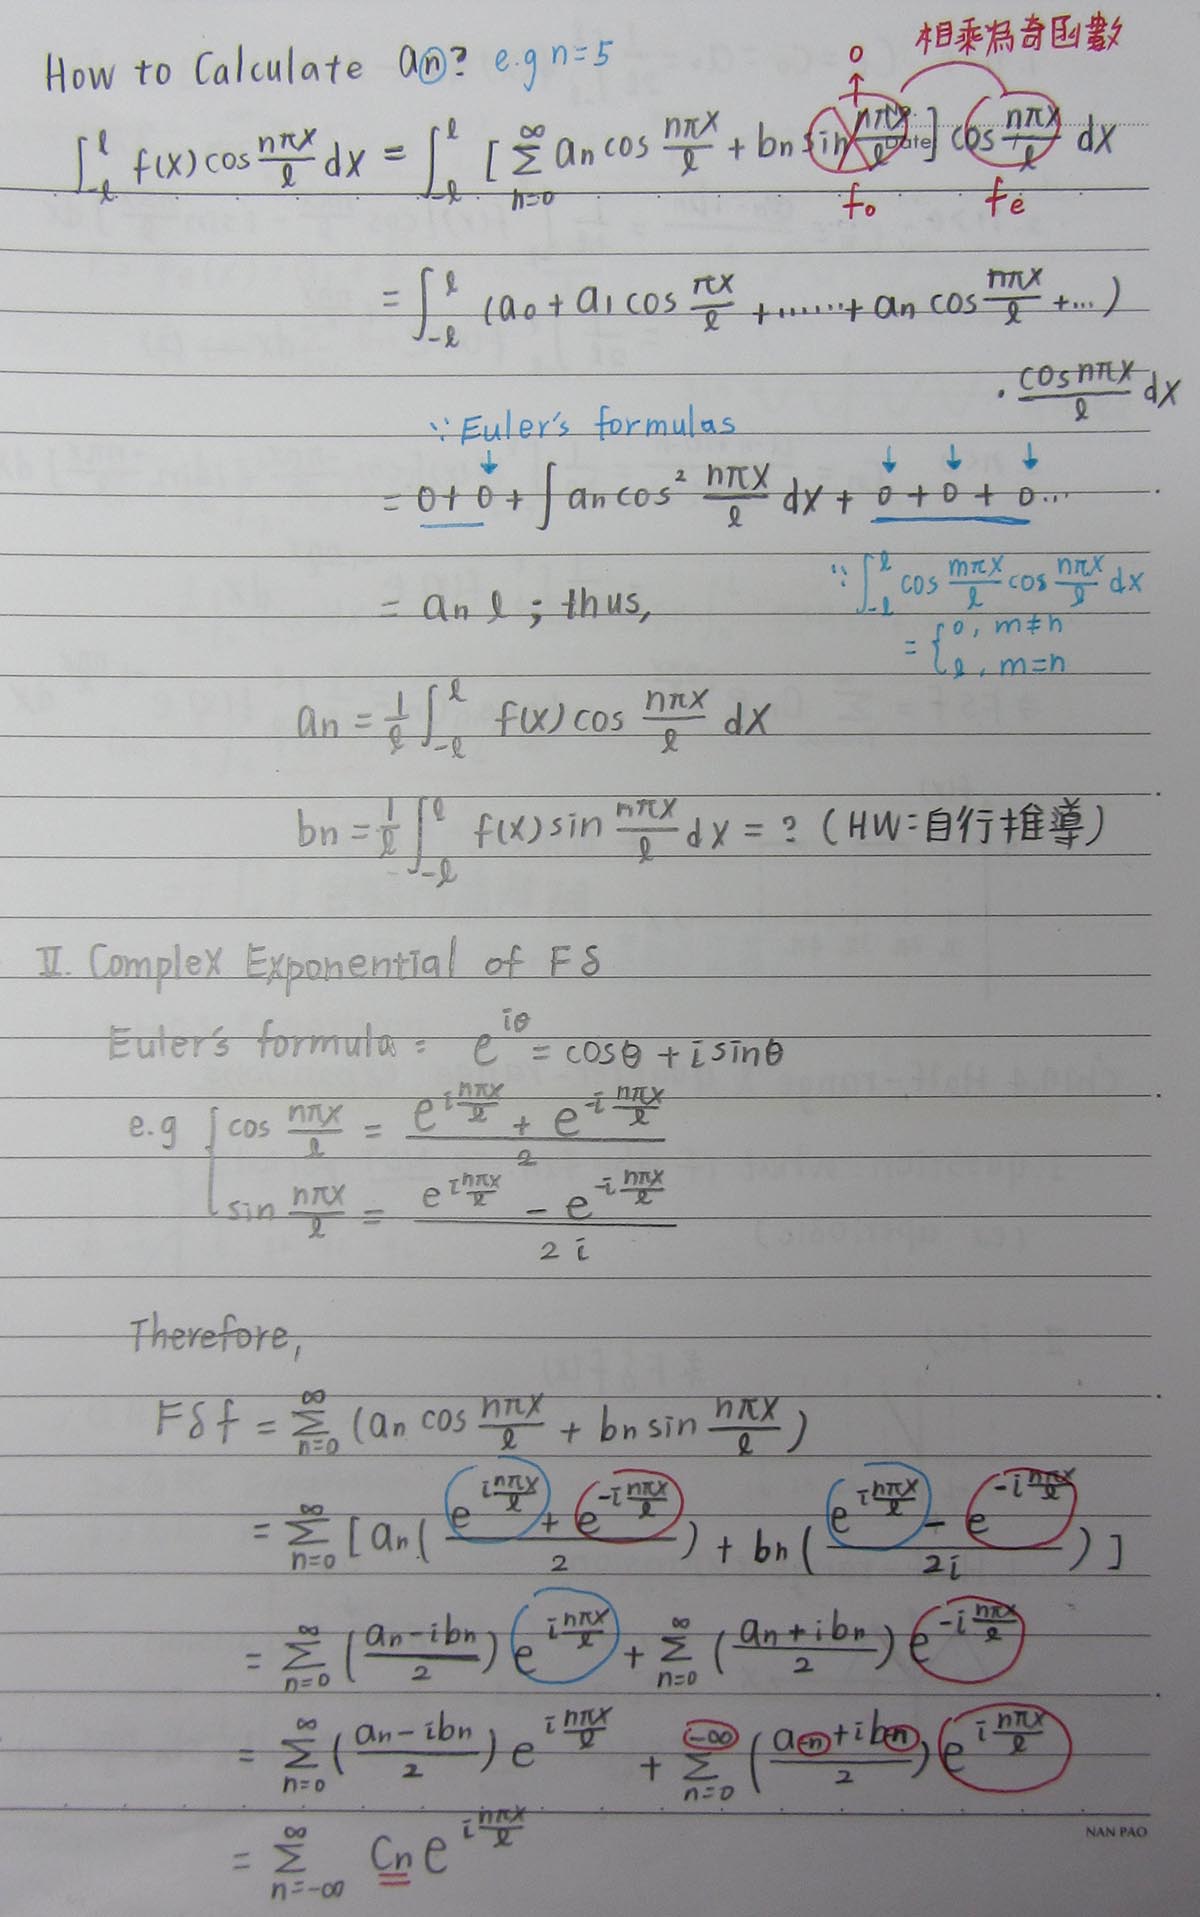 相乘為奇函數
How to Calculate an? e.g n=5
0
↑
∫_{-ℓ}^{ℓ} f(x) cos nπx/ℓ dx = ∫_{-ℓ}^{ℓ} [ Σ_{n=0}^{∞} an cos nπx/ℓ + bn sin nπx/ℓ ] cos nπx/ℓ dx
Date
fo fe
= ∫_{-ℓ}^{ℓ} (a0 + a1 cos πx/ℓ + ...... + an cos nπx/ℓ + ...)
· cos nπx/ℓ dx
∵ Euler's formulas
↓ ↓ ↓ ↓
= 0 + 0 + ∫ an cos² nπx/ℓ dx + 0 + 0 + 0 ...
∵ ∫_{-ℓ}^{ℓ} cos mπx/ℓ cos nπx/ℓ dx
= { 0, m≠n
ℓ, m=n
= an ℓ ; thus,
an = 1/ℓ ∫_{-ℓ}^{ℓ} f(x) cos nπx/ℓ dx
bn = 1/ℓ ∫_{-ℓ}^{ℓ} f(x) sin nπx/ℓ dx = ? (HW: 自行推導)
II. Complex Exponential of Fδ
Euler's formula: e^{iθ} = cosθ + i sinθ
e.g { cos nπx/ℓ = (e^{i nπx/ℓ} + e^{-i nπx/ℓ})/2
sin nπx/ℓ = (e^{i nπx/ℓ} - e^{-i nπx/ℓ})/2i
Therefore,
Fδf = Σ_{n=0}^{∞} (an cos nπx/ℓ + bn sin nπx/ℓ)
= Σ_{n=0}^{∞} [ an( (e^{i nπx/ℓ} + e^{-i nπx/ℓ})/2 ) + bn( (e^{i nπx/ℓ} - e^{-i nπx/ℓ})/2i ) ]
= Σ_{n=0}^{∞} ((an - ibn)/2) e^{i nπx/ℓ} + Σ_{n=0}^{∞} ((an + ibn)/2) e^{-i nπx/ℓ}
= Σ_{n=0}^{∞} ((an - ibn)/2) e^{i nπx/ℓ} + Σ_{n=0}^{-∞} ((a-n + ib-n)/2) e^{i nπx/ℓ}
= Σ_{n=-∞}^{∞} Cn e^{i nπx/ℓ}
NAN PAO